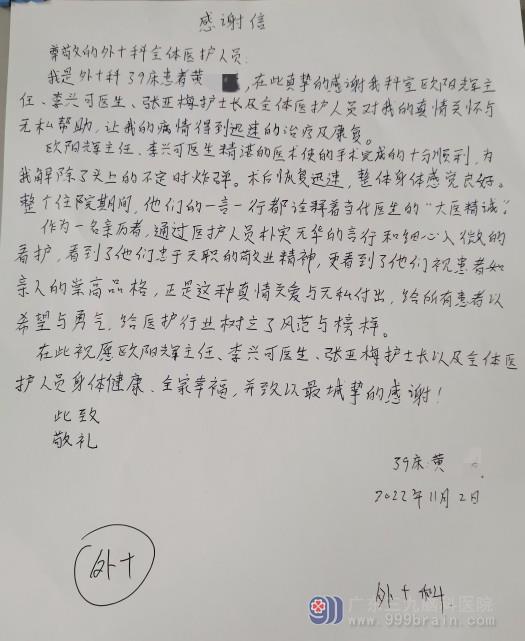 感谢信
尊敬的外十科全体医护人员
我是外十科39床患者黄，在此真挚的感谢我科室欧阳辉主
任、李兴可医生、张亚梅护士长及全体医护人员对我的真情关怀与
无私帮助，让我的病情得到迅速的治疗及康复。
欧阳辉主任、李兴可医生精湛的医术使的手术完成的十分顺利，为
我解除了头上的不定时炸弹。术后恢复迅速，整体身体感觉良好。
整个住院期间，他们的一言一行都诠释着当代医生的“大医精诚”。
作为一名亲历者，通过医护人员朴实无华的言行和细心入微的
看护，看到了他们忠于天职的敬业精神，更看到了他们视患者如
亲人的崇高品格，正是这种真情关爱与无私付出，给所有患者以
希望与勇气，给医护行业树立了风范与榜样。
在此祝愿欧阳辉主任、李兴可医生、张亚梅护士长以及全体医
护人员身体健康、全家幸福，并致以最诚挚的感谢！
此致
敬礼
39床:黄
2022年11月2日
外十
外十科
广东三九脑科医院
www.999brain.com